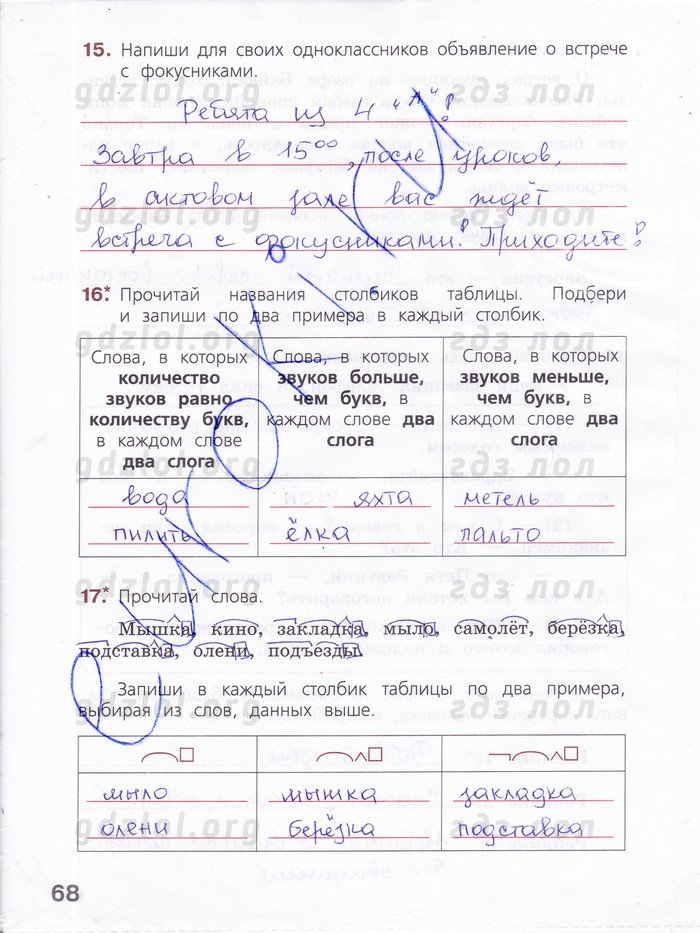 15. Напиши для своих одноклассников объявление о встрече
с фокусниками.
gdzlol.org гдз лол
Ребята из 4 "А"!
Завтра в 15⁰⁰, после уроков,
в актовом зале вас ждёт
gdzlol.org гдз лол
встреча с фокусниками! Приходите!
16* Прочитай названия столбиков таблицы. Подбери
и запиши по два примера в каждый столбик.
gdzlol.org гдз лол
Слова, в которых количество звуков равно количеству букв, в каждом слове два слога
Слова, в которых звуков больше, чем букв, в каждом слове два слога
Слова, в которых звуков меньше, чем букв, в каждом слове два слога
gdzlol.org гдз лол
вода яхта метель
пилить ёлка пальто
gdzlol.org гдз лол
17* Прочитай слова.
Мышка, кино, закладка, мыло, самолёт, берёзка,
подставка, олени, подъезды.
Запиши в каждый столбик таблицы по два примера,
выбирая из слов, данных выше.
gdzlol.org гдз лол
мыло мышка закладка
олени берёзка подставка
gdzlol.org гдз лол
68